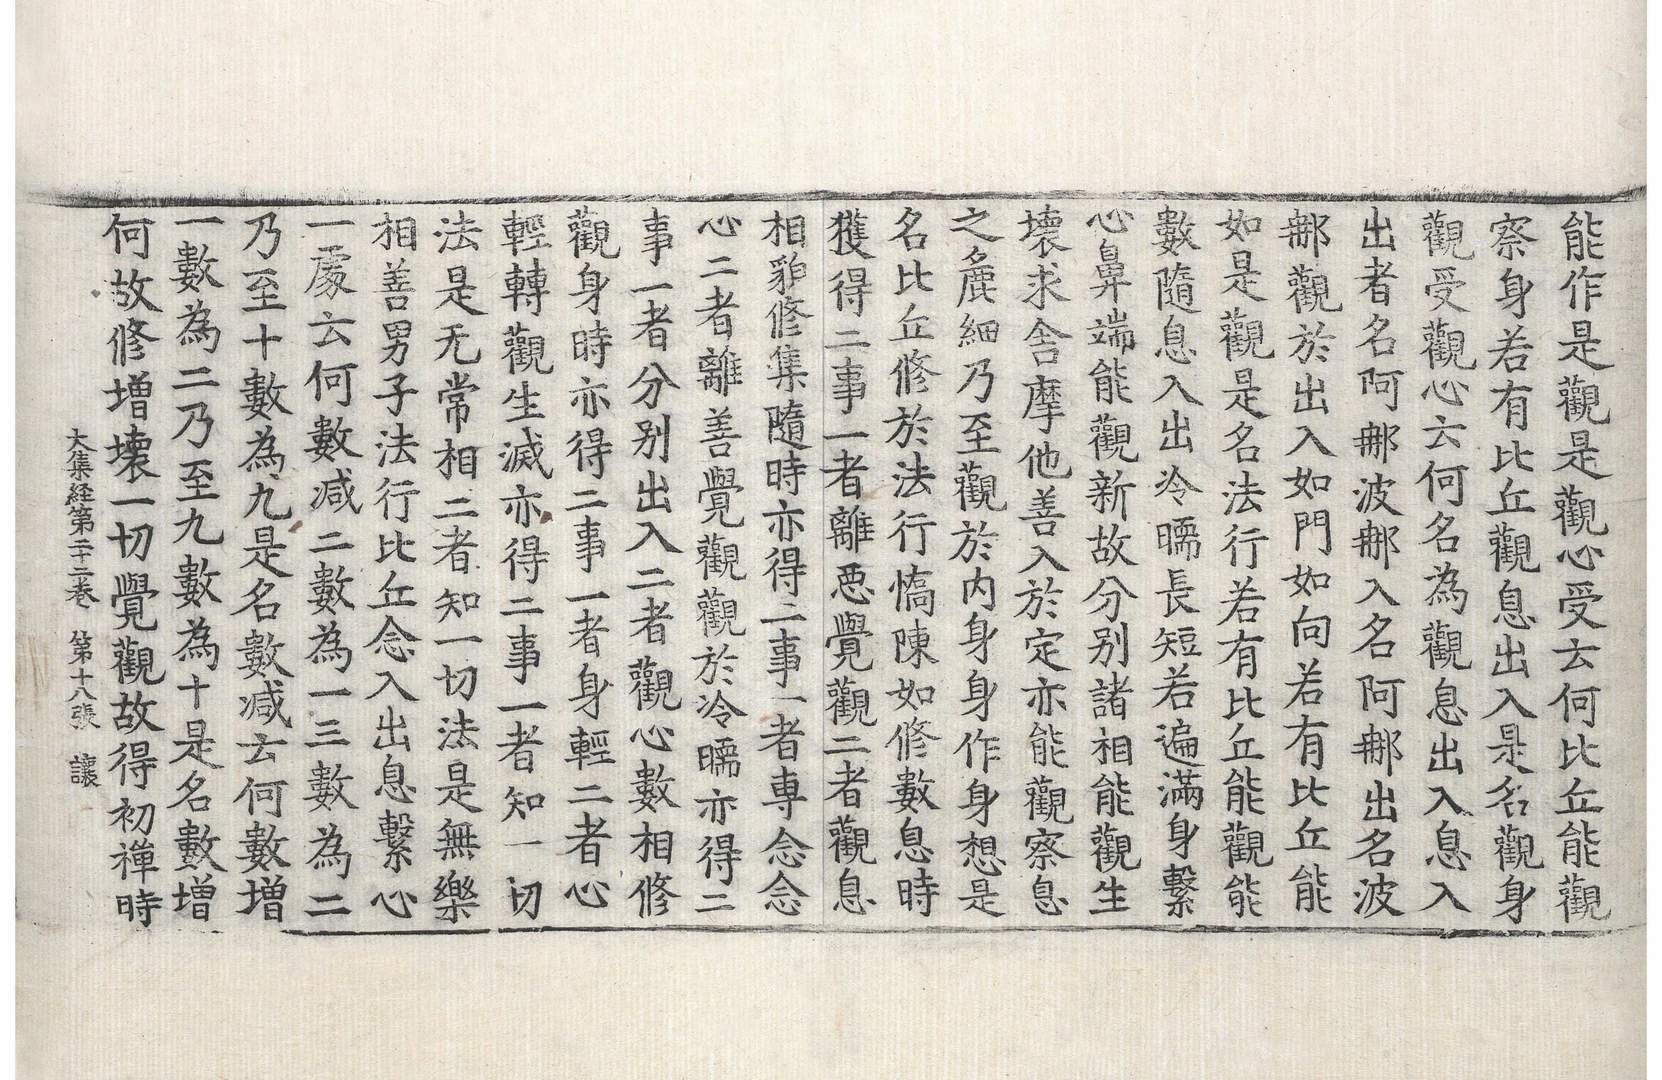 能作是觀是觀心受云何比丘能觀
察身若有比丘觀息出入是名觀身
觀受觀心云何名為觀息出入息入
出者名阿郍波郍入名阿郍出名波
郍觀於出入如門如向若有比丘能
如是觀是名法行若有比丘能觀能
數隨息入出冷暺長短若遍滿身繫
心鼻端能觀新故分别諸相能觀生
壞求舍摩他善入於定亦能觀察息
之麁細乃至觀於内身身作身想是
名比丘修於法行憍陳如修數息時
獲得二事一者離惡覺觀二者觀息
相貌修集隨時亦得二事一者專念念
心二者離善覺觀觀於冷暺亦得二
事一者分别出入二者觀心數相修
觀身時亦得二事一者身輕二者心
輕轉觀生滅亦得二事一者知一切
法是无常相二者知一切法是無樂
相善男子法行比丘念入出息繫心
一處云何數减二數為一三數為二
乃至十數為九是名數减云何數增
一數為二乃至九數為十是名數增
何故修增壞一切覺觀故得初禪時
大集経第二十二卷 第十八張 讓